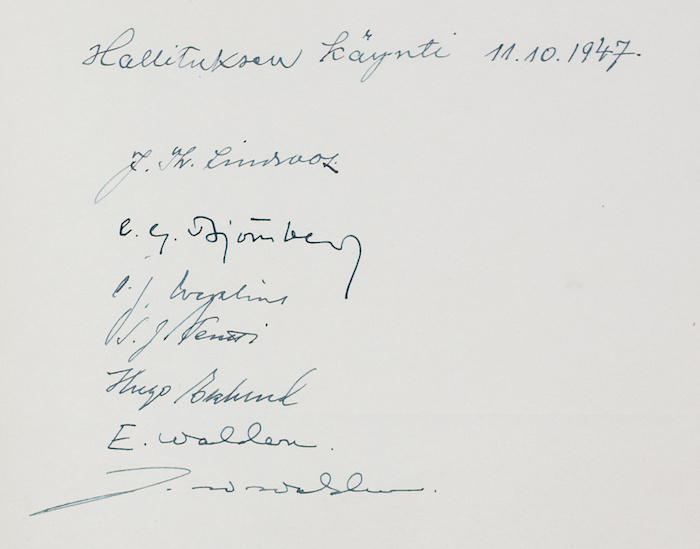 Hallituksen käynti 11.10.1947.
J. Th. Lindroos
C. G. Björnberg
C. J.
S. J. Pentti
Hugo Eklund
E. Walden.
J. W. Walden.